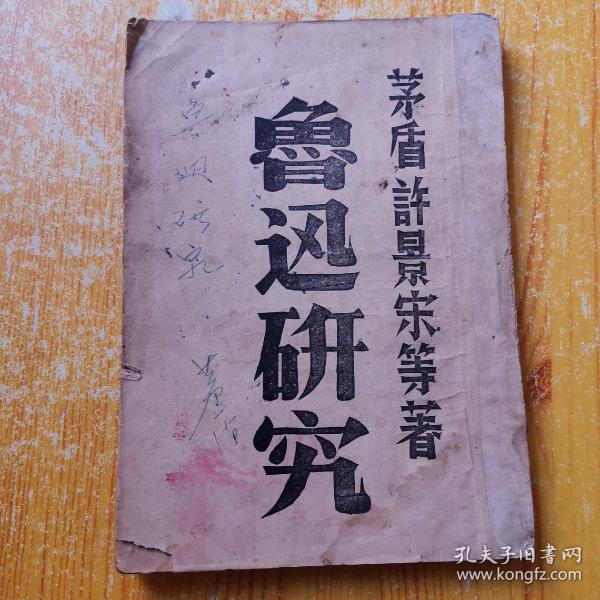 茅盾許景宋等著
魯迅研究
魯迅研究
孔夫子旧書网
www.kongfz.com